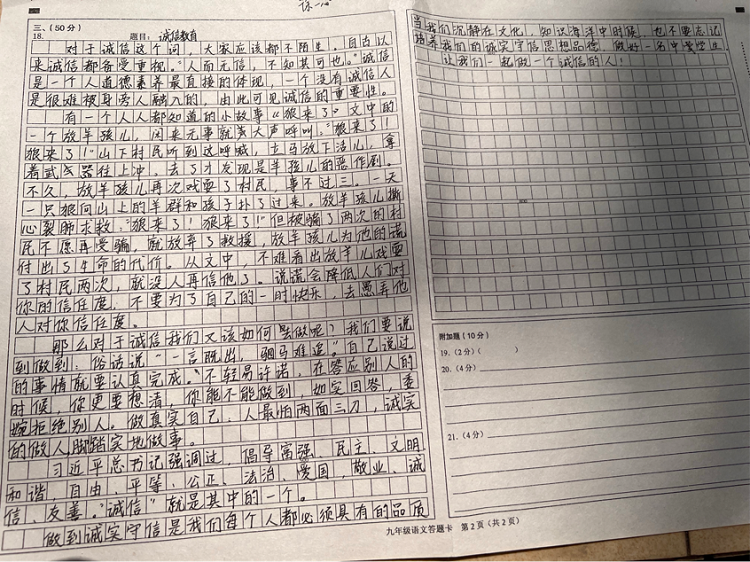 三、(50分)
18.
题目: 诚信教育
对于诚信这个词，大家应该都不陌生。自古以
来诚信都备受重视。“人而无信，不知其可也。”诚信
是一个人道德素养最直接的体现，一个没有诚信人
是很难被身旁人融入的，由此可见诚信的重要性。
有一个人人都知道的小故事《狼来了》文中的
一个放羊孩儿，闲来无事就美大声呼叫：“狼来了！
狼来了！”山下村民听到这呼喊，立马放下活儿，拿
着武器往上冲，去了才发现是羊孩儿的恶作剧。
不久，放羊孩儿再次戏耍了村民，事不过三。一天
一只狼向山上的羊群和孩子扑了过来。放羊孩儿撕
心裂肺求救：“狼来了！狼来了！”但被骗了两次的村
民不愿再受骗，就放弃了救援，放羊孩儿为他的谎
付出了生命的代价。从文中，不难看出放羊儿戏耍
了村民两次，就没人再信他了。说谎会降低人们对
你的信任度，不要为了自己的一时快乐，去愚弄他
人对你信任度。
那么对于诚信我们又该如何去做呢？我们要说
到做到：俗话说“一言既出，驷马难追。”自己说过
的事情就要认真完成。不轻易许诺，在答应别人的
时候，你更要想清，你能不能做到，如实回答，委
婉拒绝别人。做真实自己，人最怕两面三刀，诚实
的做人脚踏实地做事。
习近平总书记强调过，倡导富强、民主、文明
和谐、自由、平等、公正、法治、爱国、敬业、诚
信、友善。“诚信”就是其中的一个。
做到诚实守信是我们每个人都必须具有的品质
当我们沉静在文化、知识海洋中时候，也不要忘记
培养我们的诚实守信思想品德，做好一名中学生
让我们一起做一个诚信的人！
附加题 (10分)
19. (2分) (　　)
20. (4分)
21. (4分)
九年级语文答题卡　第2页 (共2页)